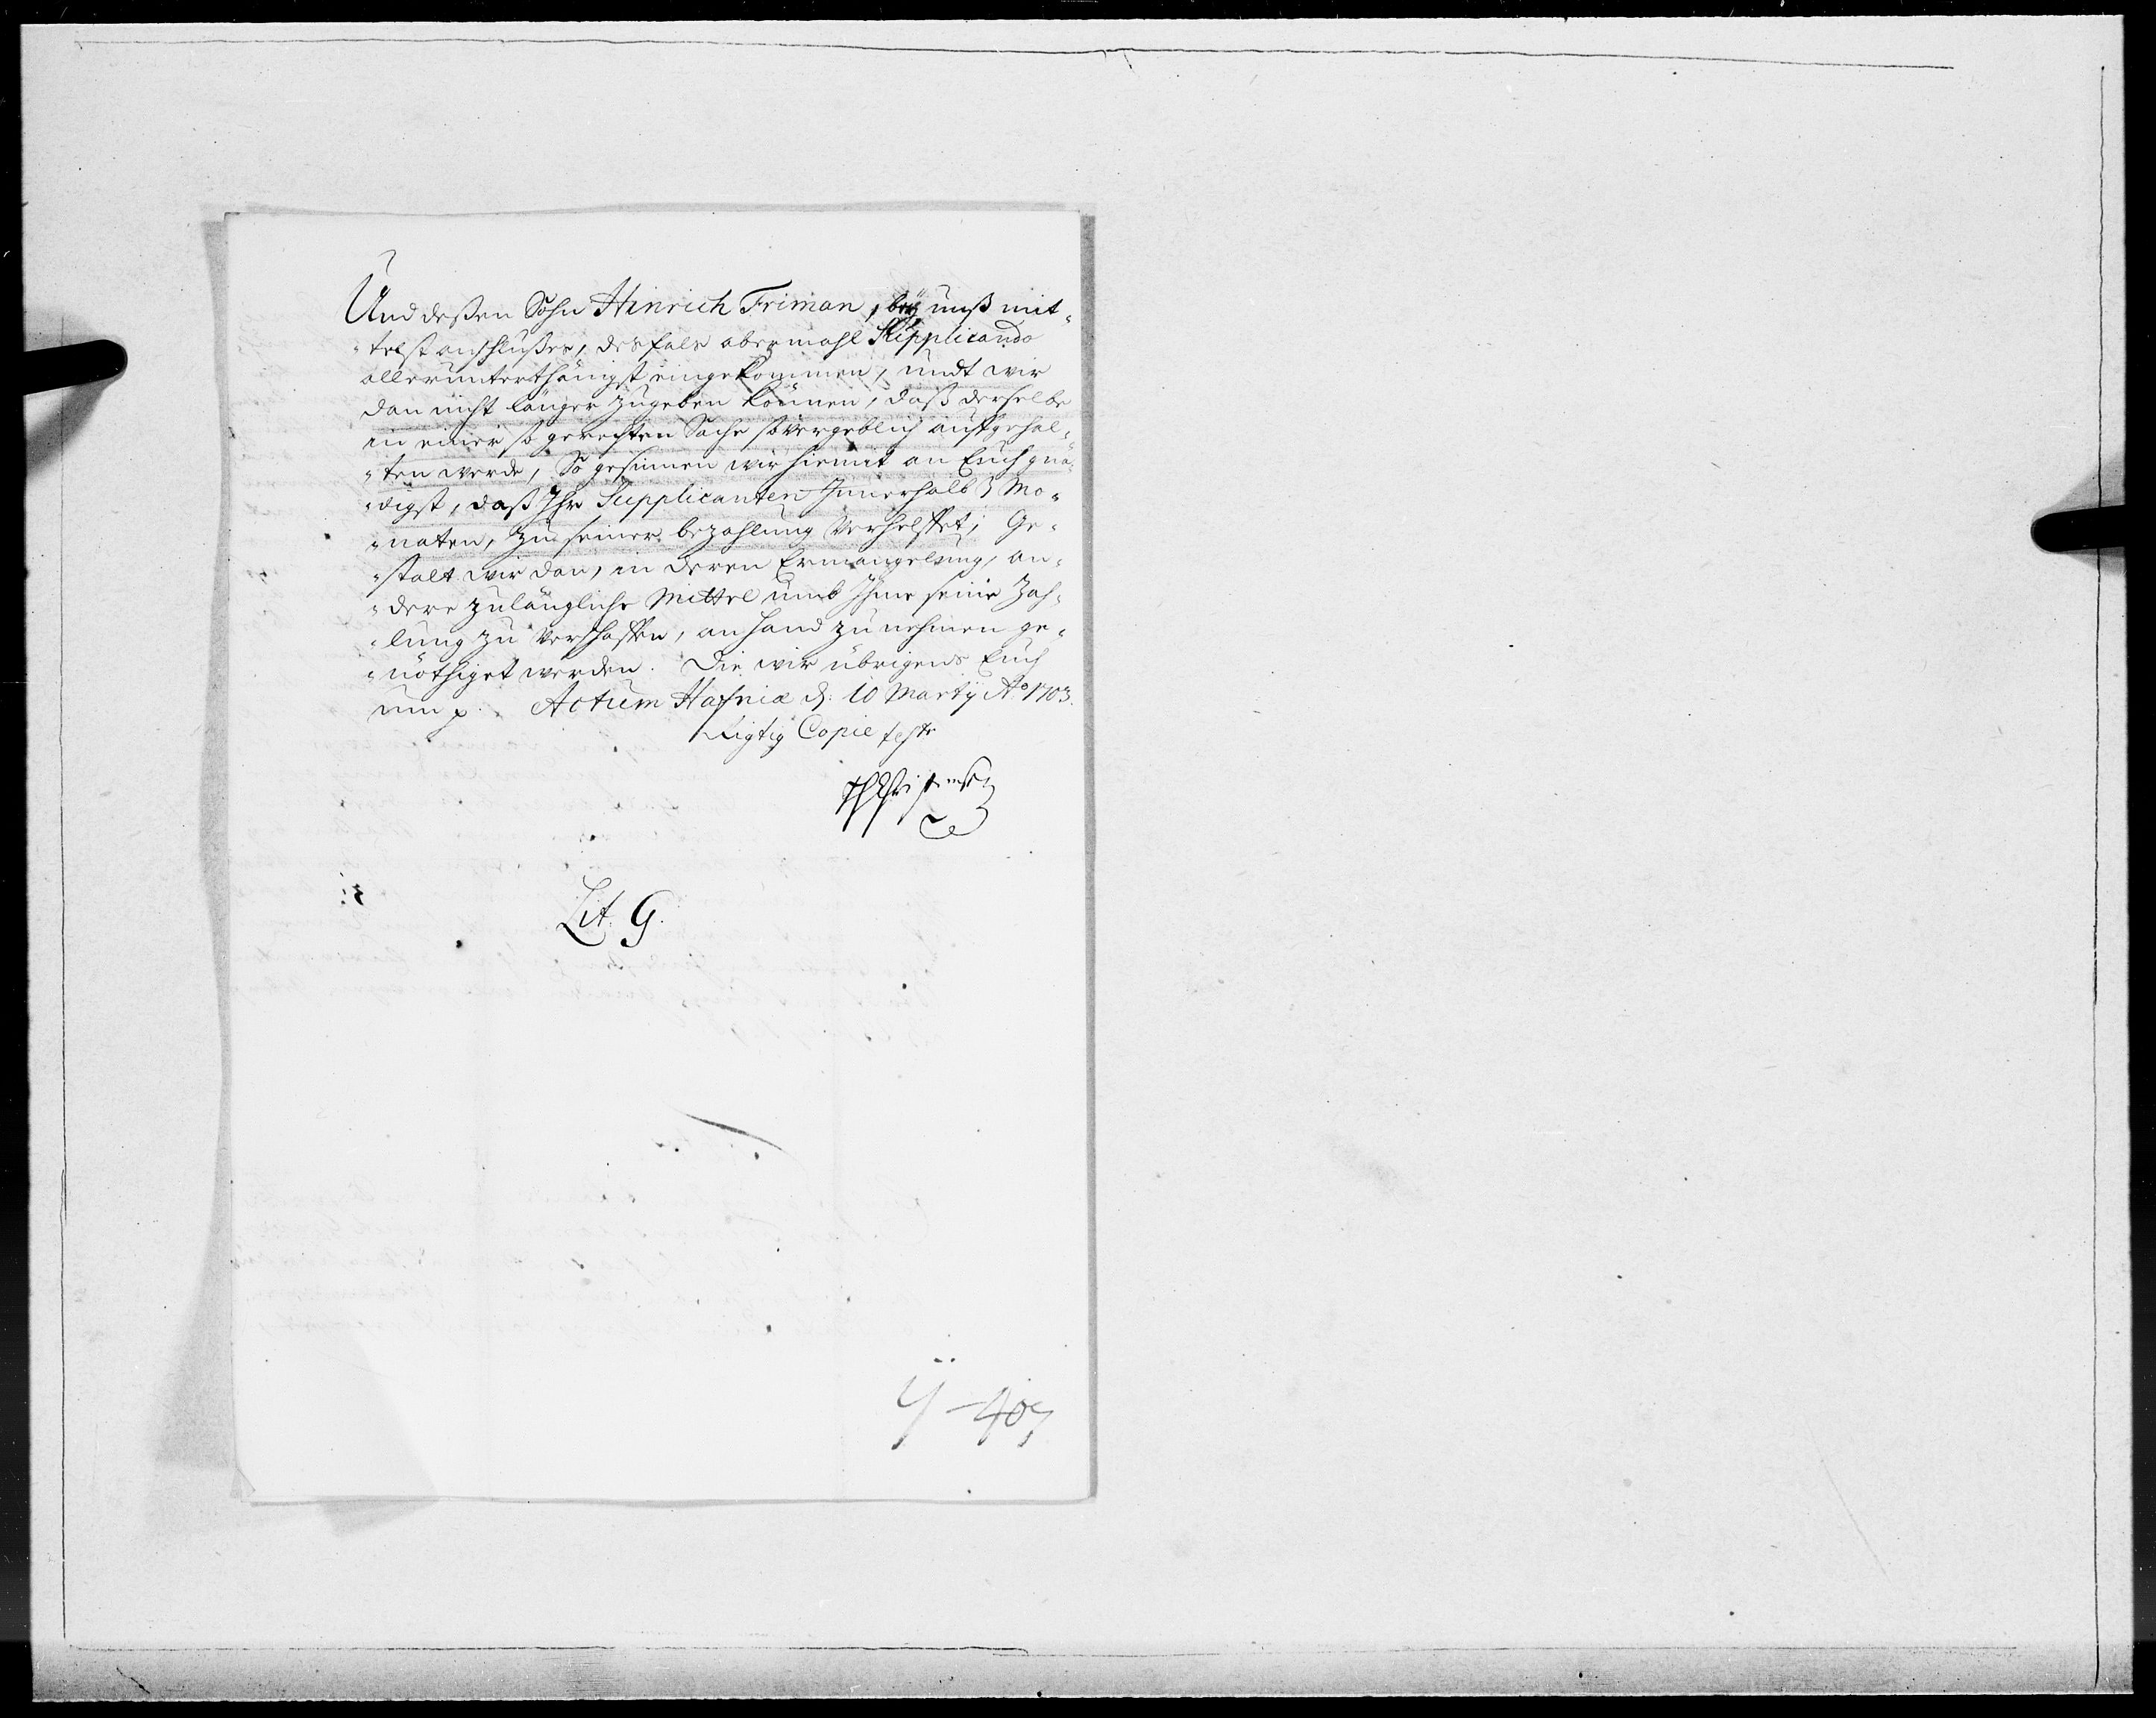 Und deßen Sohn Hinrich Friman, beÿ unß mit-
telst anschlußes, desfals abermahl Supplicando
allerunterthänigst eingekommen, undt wir
dan nicht länger zugeben können, daß derselbe
in einer so gerechten Sache so vergeblich auffgehal-
ten werde, So gesinnen wir hiemit an Euch gnä-
digst, daß Ihr Supplicanten Innerhalb 3 Mo-
naten, zu seiner bezahlung verhelffet, Ge-
stalt wir dan, in deren Ermangelung, an-
dere zulängliche Mittel umb Ihme seine Zah-
lung zu verschaffen, an hand zu nehmen ge-
nöthiget werden. Die wir übrigens Euch
Actum Hafniæ d: 10 Martÿ Aº 1703.
Rigtig Copie teste
Lit. G.
ÿ-407